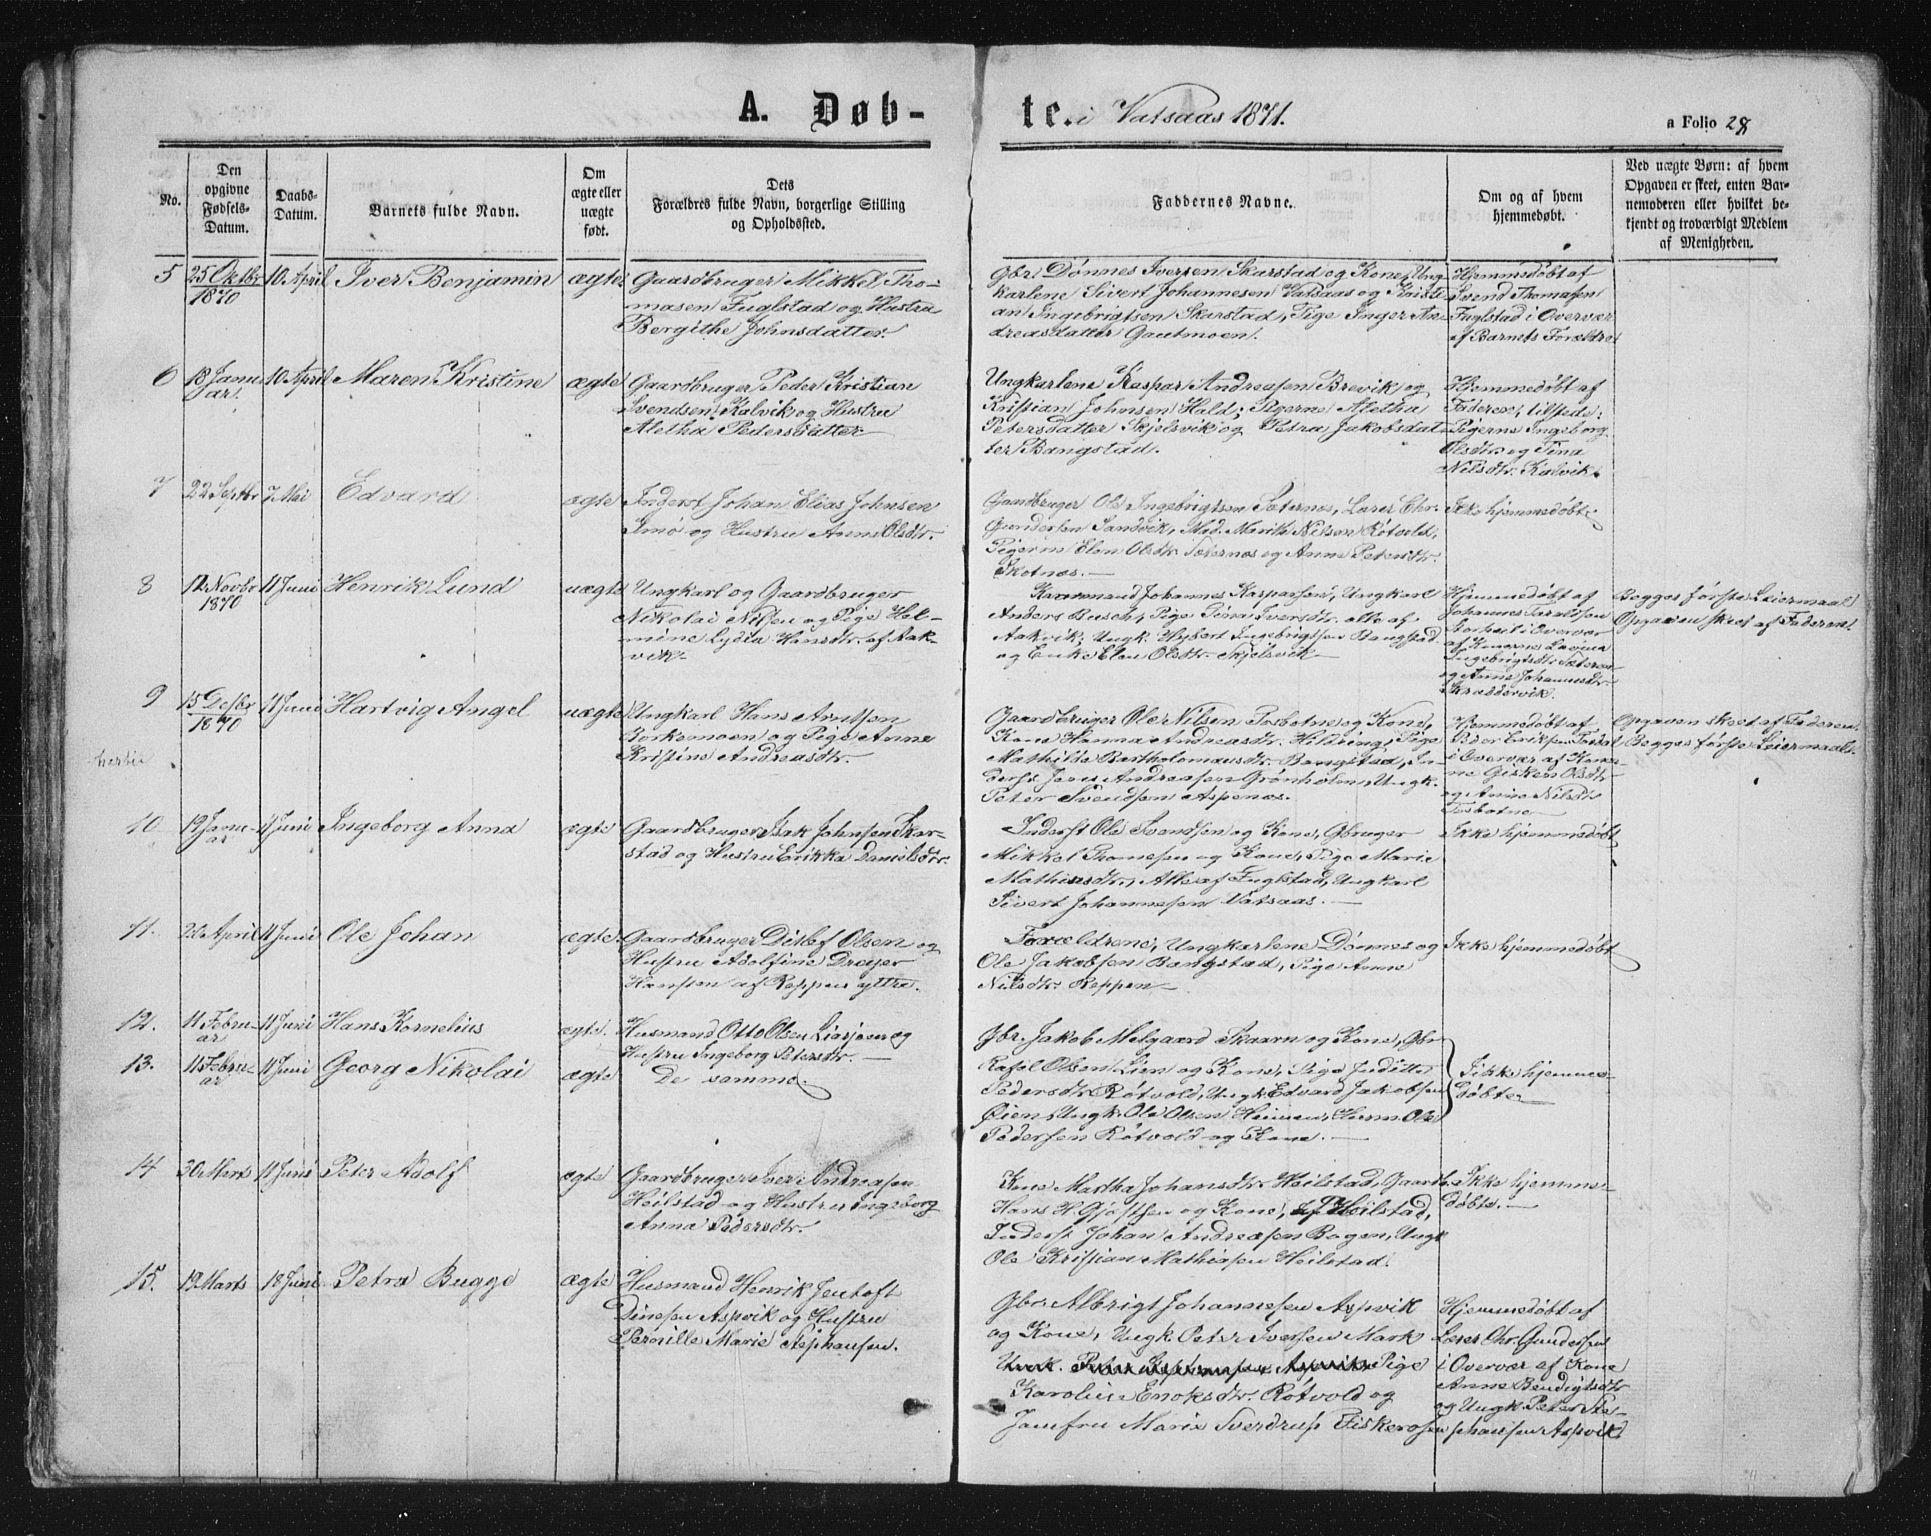 A. Døb-
te. i Vatsaas 1871.
a Folio 28
No.
Den
opgivne
Fødsels-
Datum.
Daabs-
Datum.
Barnets fulde Navn.
Om
ægte eller
uægte
født.
Dets
Forældres fulde Navn, borgerlige Stilling
og Opholdssted.
Faddernes Navne.
Om og af hvem
hjemmedøbt.
Ved uægte Børn: af hvem
Opgaven er skeet, enten Bar-
nemoderen eller hvilket be-
kjendt og troværdigt Medlem
af Menigheden.
5
25 Oktbr
1870
10 April
Iver Benjamin
ægte
Gaardbruger Mikkel Tho-
masen Fuglstad og Hustru
Bergithe Johnsdatter.
Gbr. Dønnes Iversen Skarstad og Kone, Ung
karlene Sivert Johannesen Vatsaas og Kristi-
an Ingebrigtsen Skarstad, Pige Inger An
dreasdatter Gautmoen.
Hjemmedøbt af
Svend Thomasen
Fuglstad i Overvær
af Barnets Forældre
6
13 Janu
ar.
10 April
Maren Kristine
ægte
Gaardbruger Peder Kristian
Svendsen Kalvik og Hustru
Aletha Pedersdatter
Ungkarlene Kaspar Andreasen Brevik og
Kristian Johnsen Hald; Pigerne Aletha
Petersdatter Skjelsvik og Petra Jakobsdat-
ter Bangstad.
Hjemmedøbt af
Faderen, tilstede:
Pigerne Ingeborg
Olsdtr. og Tina
Nilsdtr. Kalvik.
7
22 Septbr
7 Mai
Edvard
ægte
Inderst Johan Elias Johnsen
Simø og Hustru Anne Olsdtr.
Gaardbruger Ole Ingebrigtsen Sæternes, Lærer Chr.
Gundersen Sandvik, Mad. Marith Nilsen Røtvold,
Pigerne Elen Olsdtr. Sæternes og Anne Petersdtr.
Skotnæs. —
Ikke hjemmedøbt
8
12 Novbr
1870
11 Juni
Henrik Lund
uægte
Ungkarl og Gaardbruger
Nikolai Nilsen og Pige Hel-
mine Lydia Hansdtr. af Aak-
vik.
Kaarmand Johannes Kasparsen, Ungkarl
Anders Busch, Pige Tina Iversdtr. alle af
Aakvik; Ungk. Hybert Ingebrigtsen Bangstad
og Enke Elen Olsdtr. Skjelsvik —
Hjemmedøbt af
Johannes Taraldsen
Storheil i Overvær
af Konerne Lavina
Ingebrigtsdtr. Sæternes
og Anne Johannesdtr.
Begges første Leiermaal
Opgaven skeet af Faderen.
9
15 Desbr
1870
11 Juni
Hartvig Angel
uægte
Ungkarl Hans Arntsen
Borkemoen og Pige Anne
Kristine Andreasdtr.
Gaardbruger Ole Nilsen Tosbotne og Kone,
Kone Hanna Andreasdtr. Hildring, Pige
Mathilde Bartholomæusdtr. Bangstad, In-
derst Jens Andreasen Grønholm, Ungk.
Peter Svendsen Aspenæs.
Hjemmedøbt af
Peder Eriksen Tosdal
i Overvær af Koner-
ne Gisken Olsdtr.
og Anne Nilsdtr.
Tosbotne
Opgaven skeet af Faderen.
Begges første Leiermaal.
10
19 Janu-
ar
11 Juni
Ingeborg Anna
ægte
Gaardbruger Isak Johnsen Skar-
stad og Hustru Erikka Danielsdtr.
Inderst Ole Svendsen og Kone, Gbruger
Mikkel Thomesen og Kone, Pige Marie
Mathiasdtr., Alle af Fuglstad, Ungkarl
Sivert Johannesen Vatsaas. —
Ikke hjemmedøbt
11.
22 April
11 Juni
Ole Johan
ægte.
Gaardbruger Ditlef Olsen og
Hustru Adolfine Dreyer
Hansen af Reppen yttre.
Forældrene, Ungkarlene Dønnes og
Ole Jakobsen Bangstad, Pige Anne
Nilsdtr. Reppen —
Ikke hjemmedøbt
12.
11 Febru-
ar
11 Juni
Hans Kornelius
ægte.
Husmand Otto Olsen Liasjøen og
Hustru Ingeborg Petersdtr. —
Gbr. Jakob Melgaard Skaarn og Kone, Gbr.
13.
11 Febru-
ar
11 Juni
Georg Nikolai
ægte
De samme.
Rafel Olsen Lien og Kone, Pige Judithe
Pedersdtr. Røtvold, Ungk. Edvard Jakobsen
Øien, Ungk. Ole Olsen Heimen, Husm. Ole
Pedersen Røtvold og Kone. —
Ikke hjemme-
døbte
14
30 Marts
11 Juni
Peter Adolf
ægte
Gaardbruger Iver Andreasen
Heilstad og Hustru Ingeborg
Anna Pedersdtr.
Kone Martha Johansdtr. Heilstad, Gaardb.
Hans H. Gjøstsen og Kone, af Heilstad,
Inderst Johan Andreasen Bogen, Ungk
Ole Kristian Mathiasen Heilstad.
Ikke hjemme-
døbt. —
15.
19 Marts
18 Juni
Petra Bugge
ægte
Husmand Henrik Jentoft
Dinesen Aspvik og Hustru
Pernille Marie Stephansen.
Gbr. Albrigt Johannesen Aspvik
og Kone, Ungk. Peter Iversen Mark
Pige
Karoline Enoksdtr. Røtvold og
Jomfru Marie Sverdrup Fiskerosen
Hjemmedøbt af
Lærer Chr. Gundersen
i Overvær af Kone
Anne Bendigtsdtr.
og Ungk. Peter Ste-
phansen Aspvik